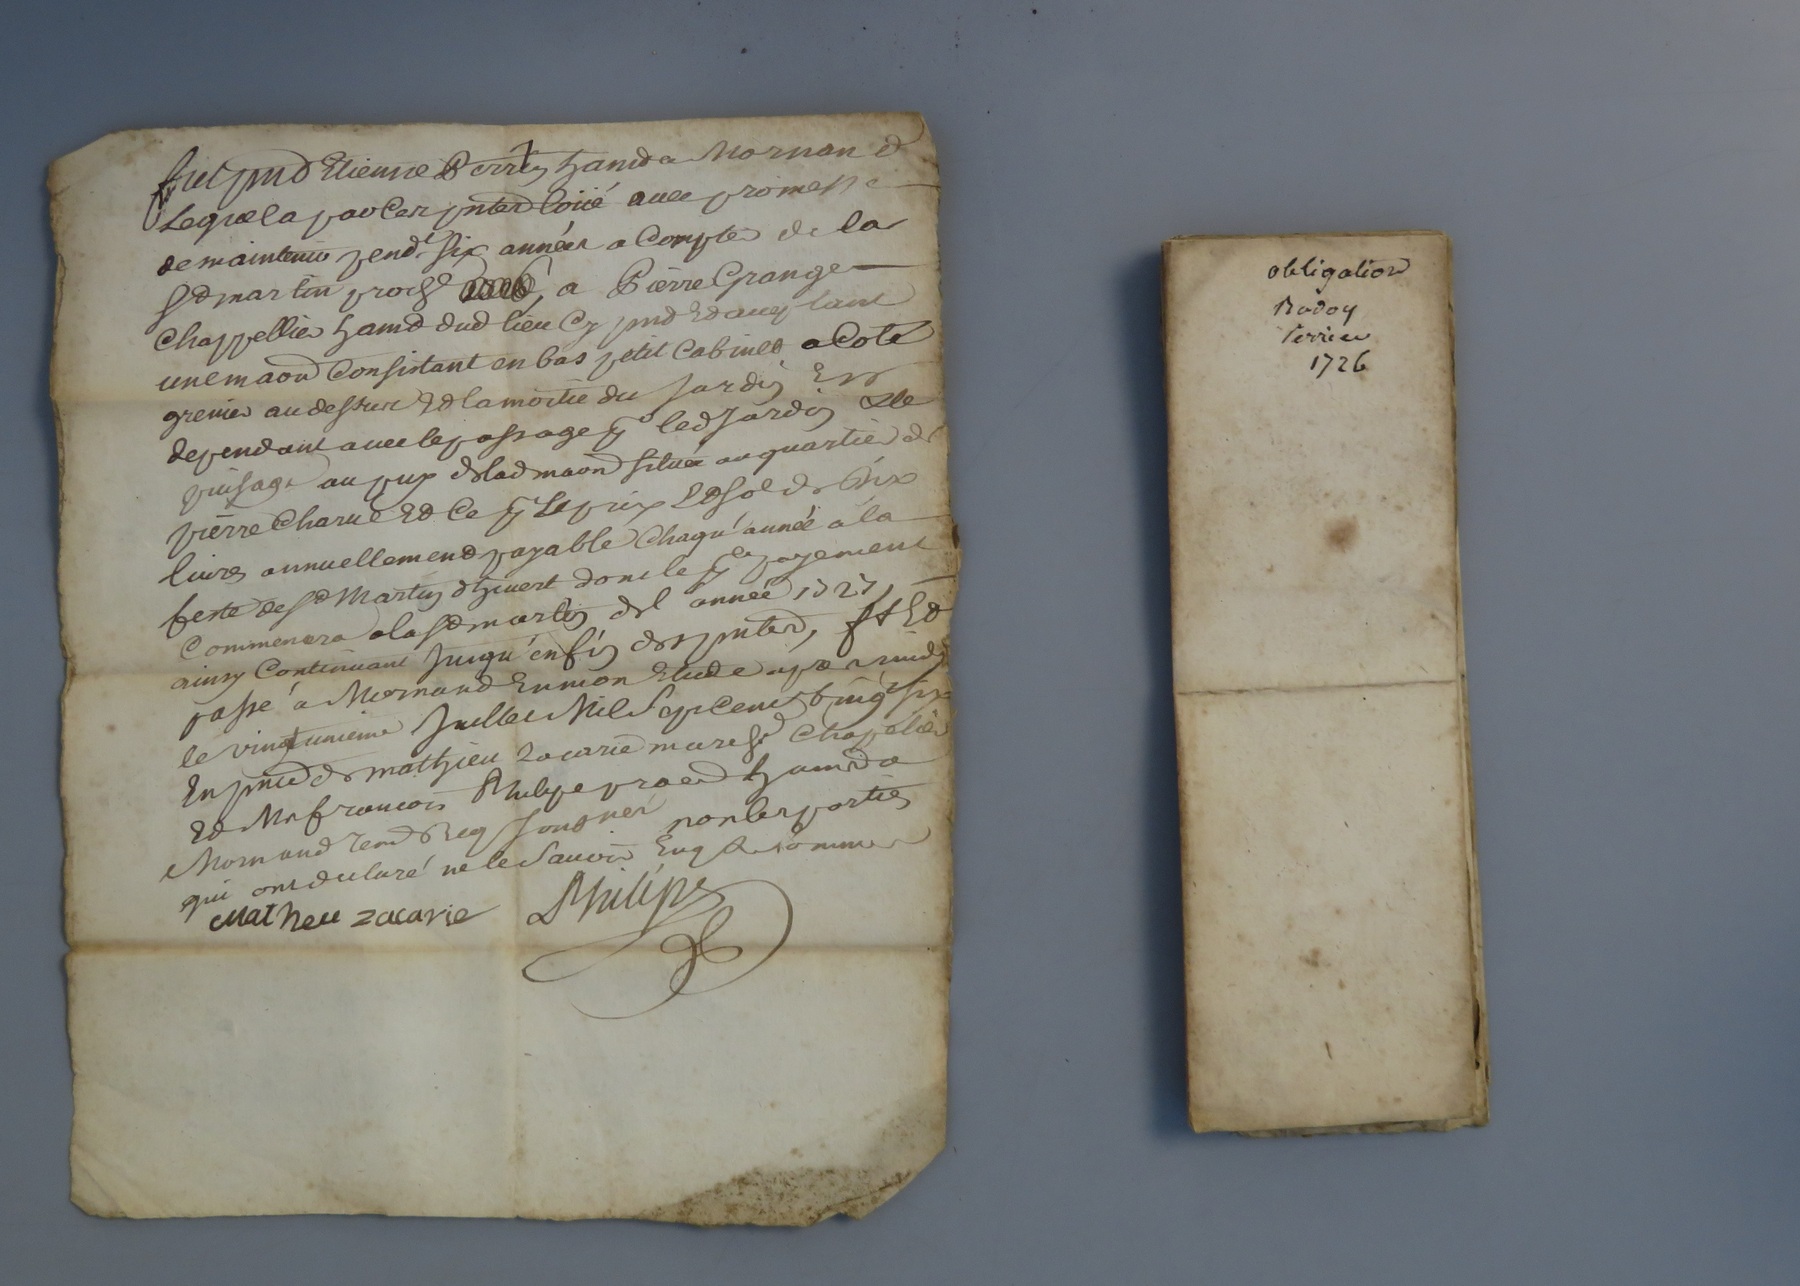 fut pnt Etienne Perrin habit a Mornan d
Lequel a par Ces pntes loüé avec promesse
de maintenir pendt six années a Compter de la
St martin proche, a Pierre Grange
Chappellier habit dud lieu Cy pnt Et acceptant
une maon Consistant en bas petit Cabinet a Coté
grenier au dessus Et la moitié du Jardin En
dependant avec le passage pr led Jardin Et le
puisage au puy de lad maon située au quartier de
pierre Charue Et Ce pr Le prix Et so de dix
livres annuellement payable Chaqu'année a la
feste de St Martin d'hivert dont le pr payement
Commencera a la St martin de l'année 1727,
ainsy Continuant Jusqu'en fin des pntes, ft Et
passé a Mornand En mon Etude apres midy
le vingtunieme Juillet Mil Sept Cents vingt six
En pnce de mathieu Zacarie march Chapelier
Et Me francois Philipe pra habit a
Mornand Signés non les parties
qui ont declaré ne le Savoir Enq & sommés
Matheu zacarie Philipe
obligation
Badoy
Perrier
1726